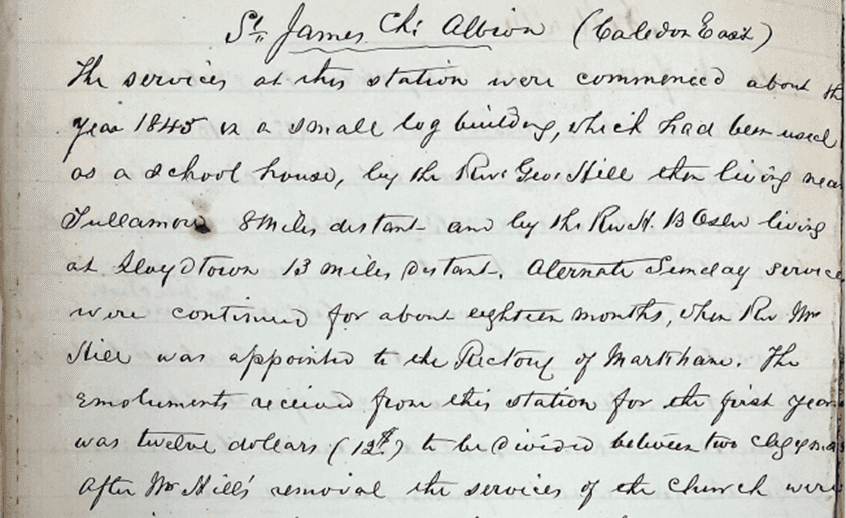 St. James Ch: Albion (Caledon East)
The services at this station were commenced about th
year 1845 in a small log building, which had been used
as a school house, by the Revd Geo: Hill then living near
Tullamore 8 Miles distant and by the Rev H. B Osler living
at Lloydtown 13 miles distant. Alternate Sunday service
were continued for about eighteen months, when Rev Mr
Hill was appointed to the Rectory of Markham. The
Emoluments received from this station for the first year
was twelve dollars (12$) to be divided between two clergymen
After Mr Hill's removal the services of the Church were